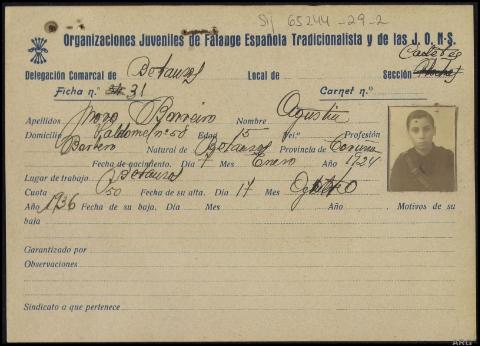 Si 65244-29-2
Organizaciones Juveniles de Falange Española Tradicionalista y de las J. O. N-S.
Cadetes
Delegación Comarcal de Betanzos Local de Sección
Ficha n.º 31 Carnet n.º
Apellidos Barreiro Nombre Agustín
Domicilio nº 58 Edad 15 Profesión
Natural de Betanzos Provincia de Coruña
Fecha de nacimiento. Día 7 Mes Enero Año 1924
Lugar de trabajo Betanzos
Cuota 0'50 Fecha de su alta. Día 17 Mes
Año 1936 Fecha de su baja. Día Mes Año Motivos de su
baja
Garantizado por
Observaciones
Sindicato a que pertenece